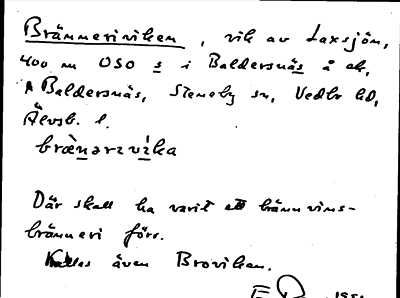 Bränneriviken, vik av Laxsjön,
400 m OSO s i Baldersnäs å ek,
Baldersnäs, Steneby sn, Vedbo hd,
Älvsb. l.
brænərɪvika
Där skall ha varit ett brännvins-
bränneri förr.
Kallas även Broviken.